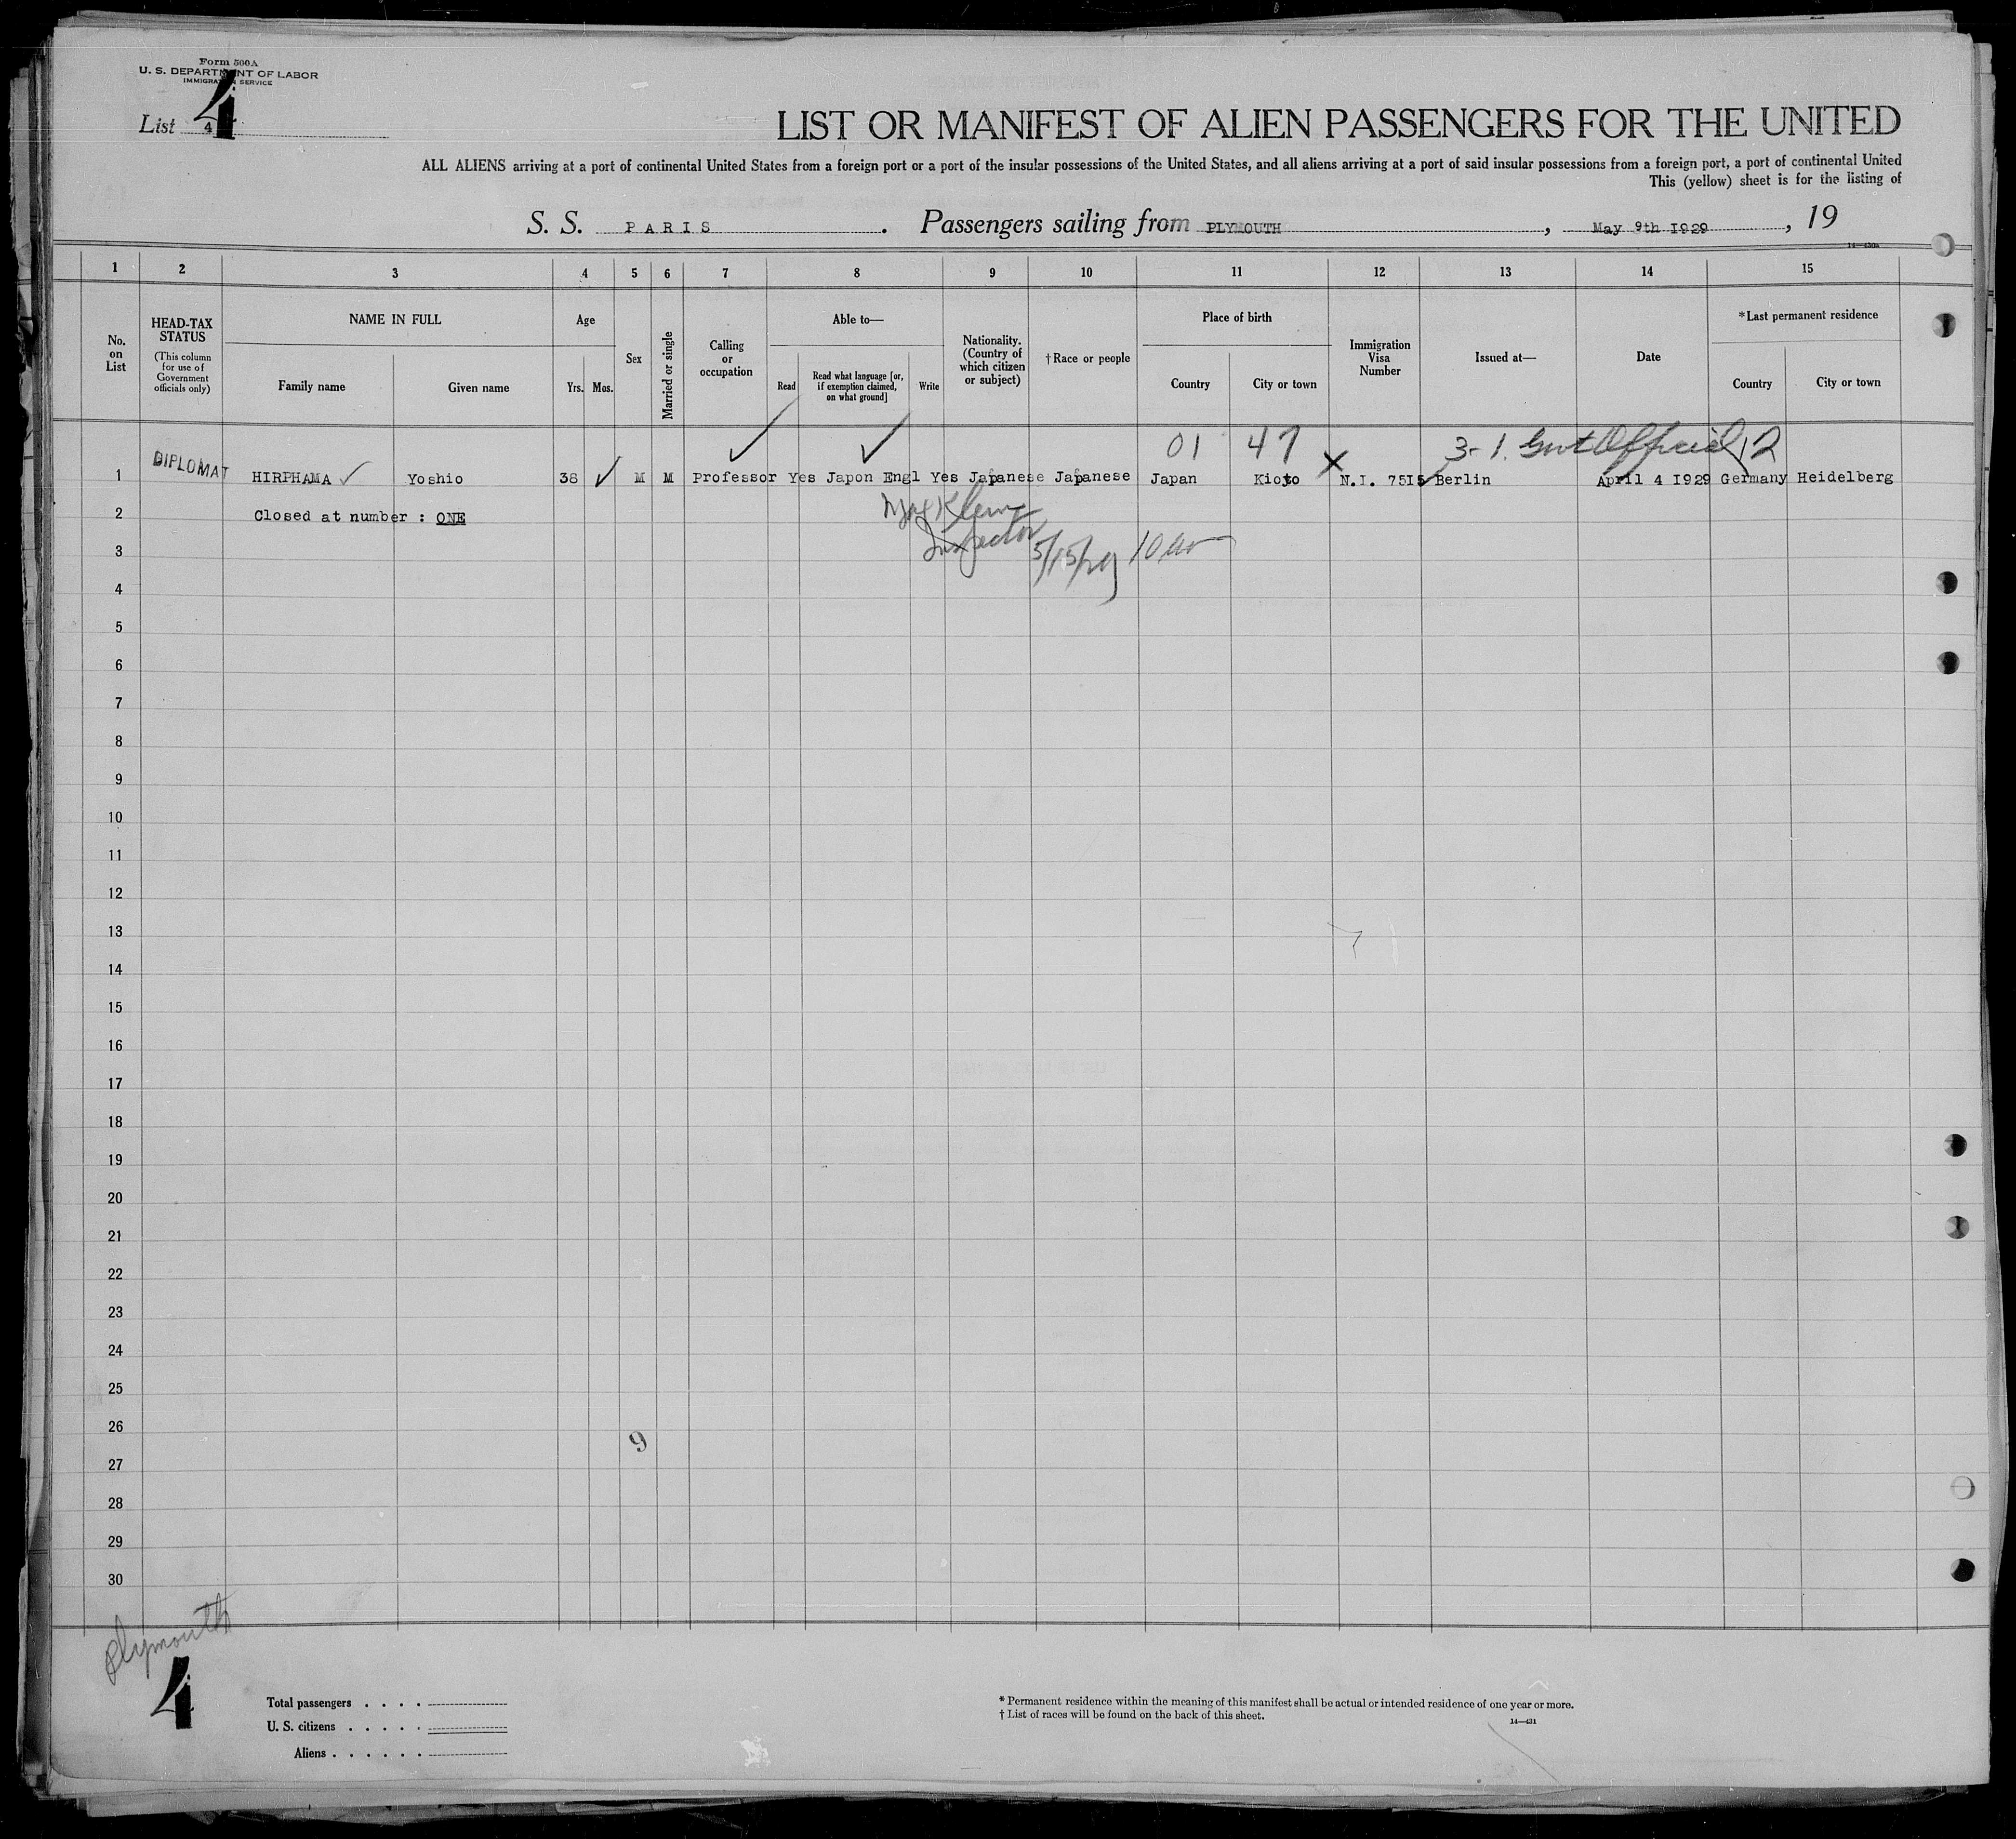 Form 500A
U. S. DEPARTMENT OF LABOR
IMMIGRATION SERVICE
4
List 4
LIST OR MANIFEST OF ALIEN PASSENGERS FOR THE UNITED
ALL ALIENS arriving at a port of continental United States from a foreign port or a port of the insular possessions of the United States, and all aliens arriving at a port of said insular possessions from a foreign port, a port of continental United
This (yellow) sheet is for the listing of
S. S. PARIS . Passengers sailing from PLYMOUTH , May 9th I929 , 19
14—430a
1 2 3 4 5 6 7 8 9 10 11 12 13 14 15
No. on List
HEAD-TAX STATUS
(This column for use of Government officials only)
NAME IN FULL
Family name
Given name
Age
Yrs. Mos.
Sex
Married or single
Calling or occupation
Able to—
Read
Read what language [or, if exemption claimed, on what ground]
Write
Nationality. (Country of which citizen or subject)
†Race or people
Place of birth
Country
City or town
Immigration Visa Number
Issued at—
Date
*Last permanent residence
Country
City or town
01 47 3-1. Govt Official 12
1 DIPLOMAT HIRPHAMA ✓ Yoshio 38 ✓ M M Professor Yes Japon Engl Yes Japanese Japanese Japan Kioto X N.I. 75I5 ✓ Berlin April 4 I929 Germany Heidelberg
2 Closed at number : ONE
Inspector
3 5/15/29 10 am
4
5
6
7
8
9
10
11
12
13
14
15
16
17
18
19
20
21
22
23
24
25
26
9
27
28
29
30
Plymouth
4
Total passengers . . . .
U. S. citizens . . . . .
Aliens . . . . . .
* Permanent residence within the meaning of this manifest shall be actual or intended residence of one year or more.
† List of races will be found on the back of this sheet.
14—431